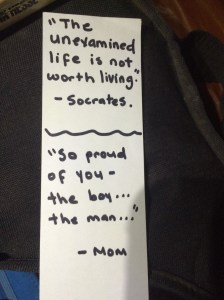 "The
unexamined
life is not
worth living."
- Socrates.
"So proud
of you -
the boy...
the man..."
- Mom